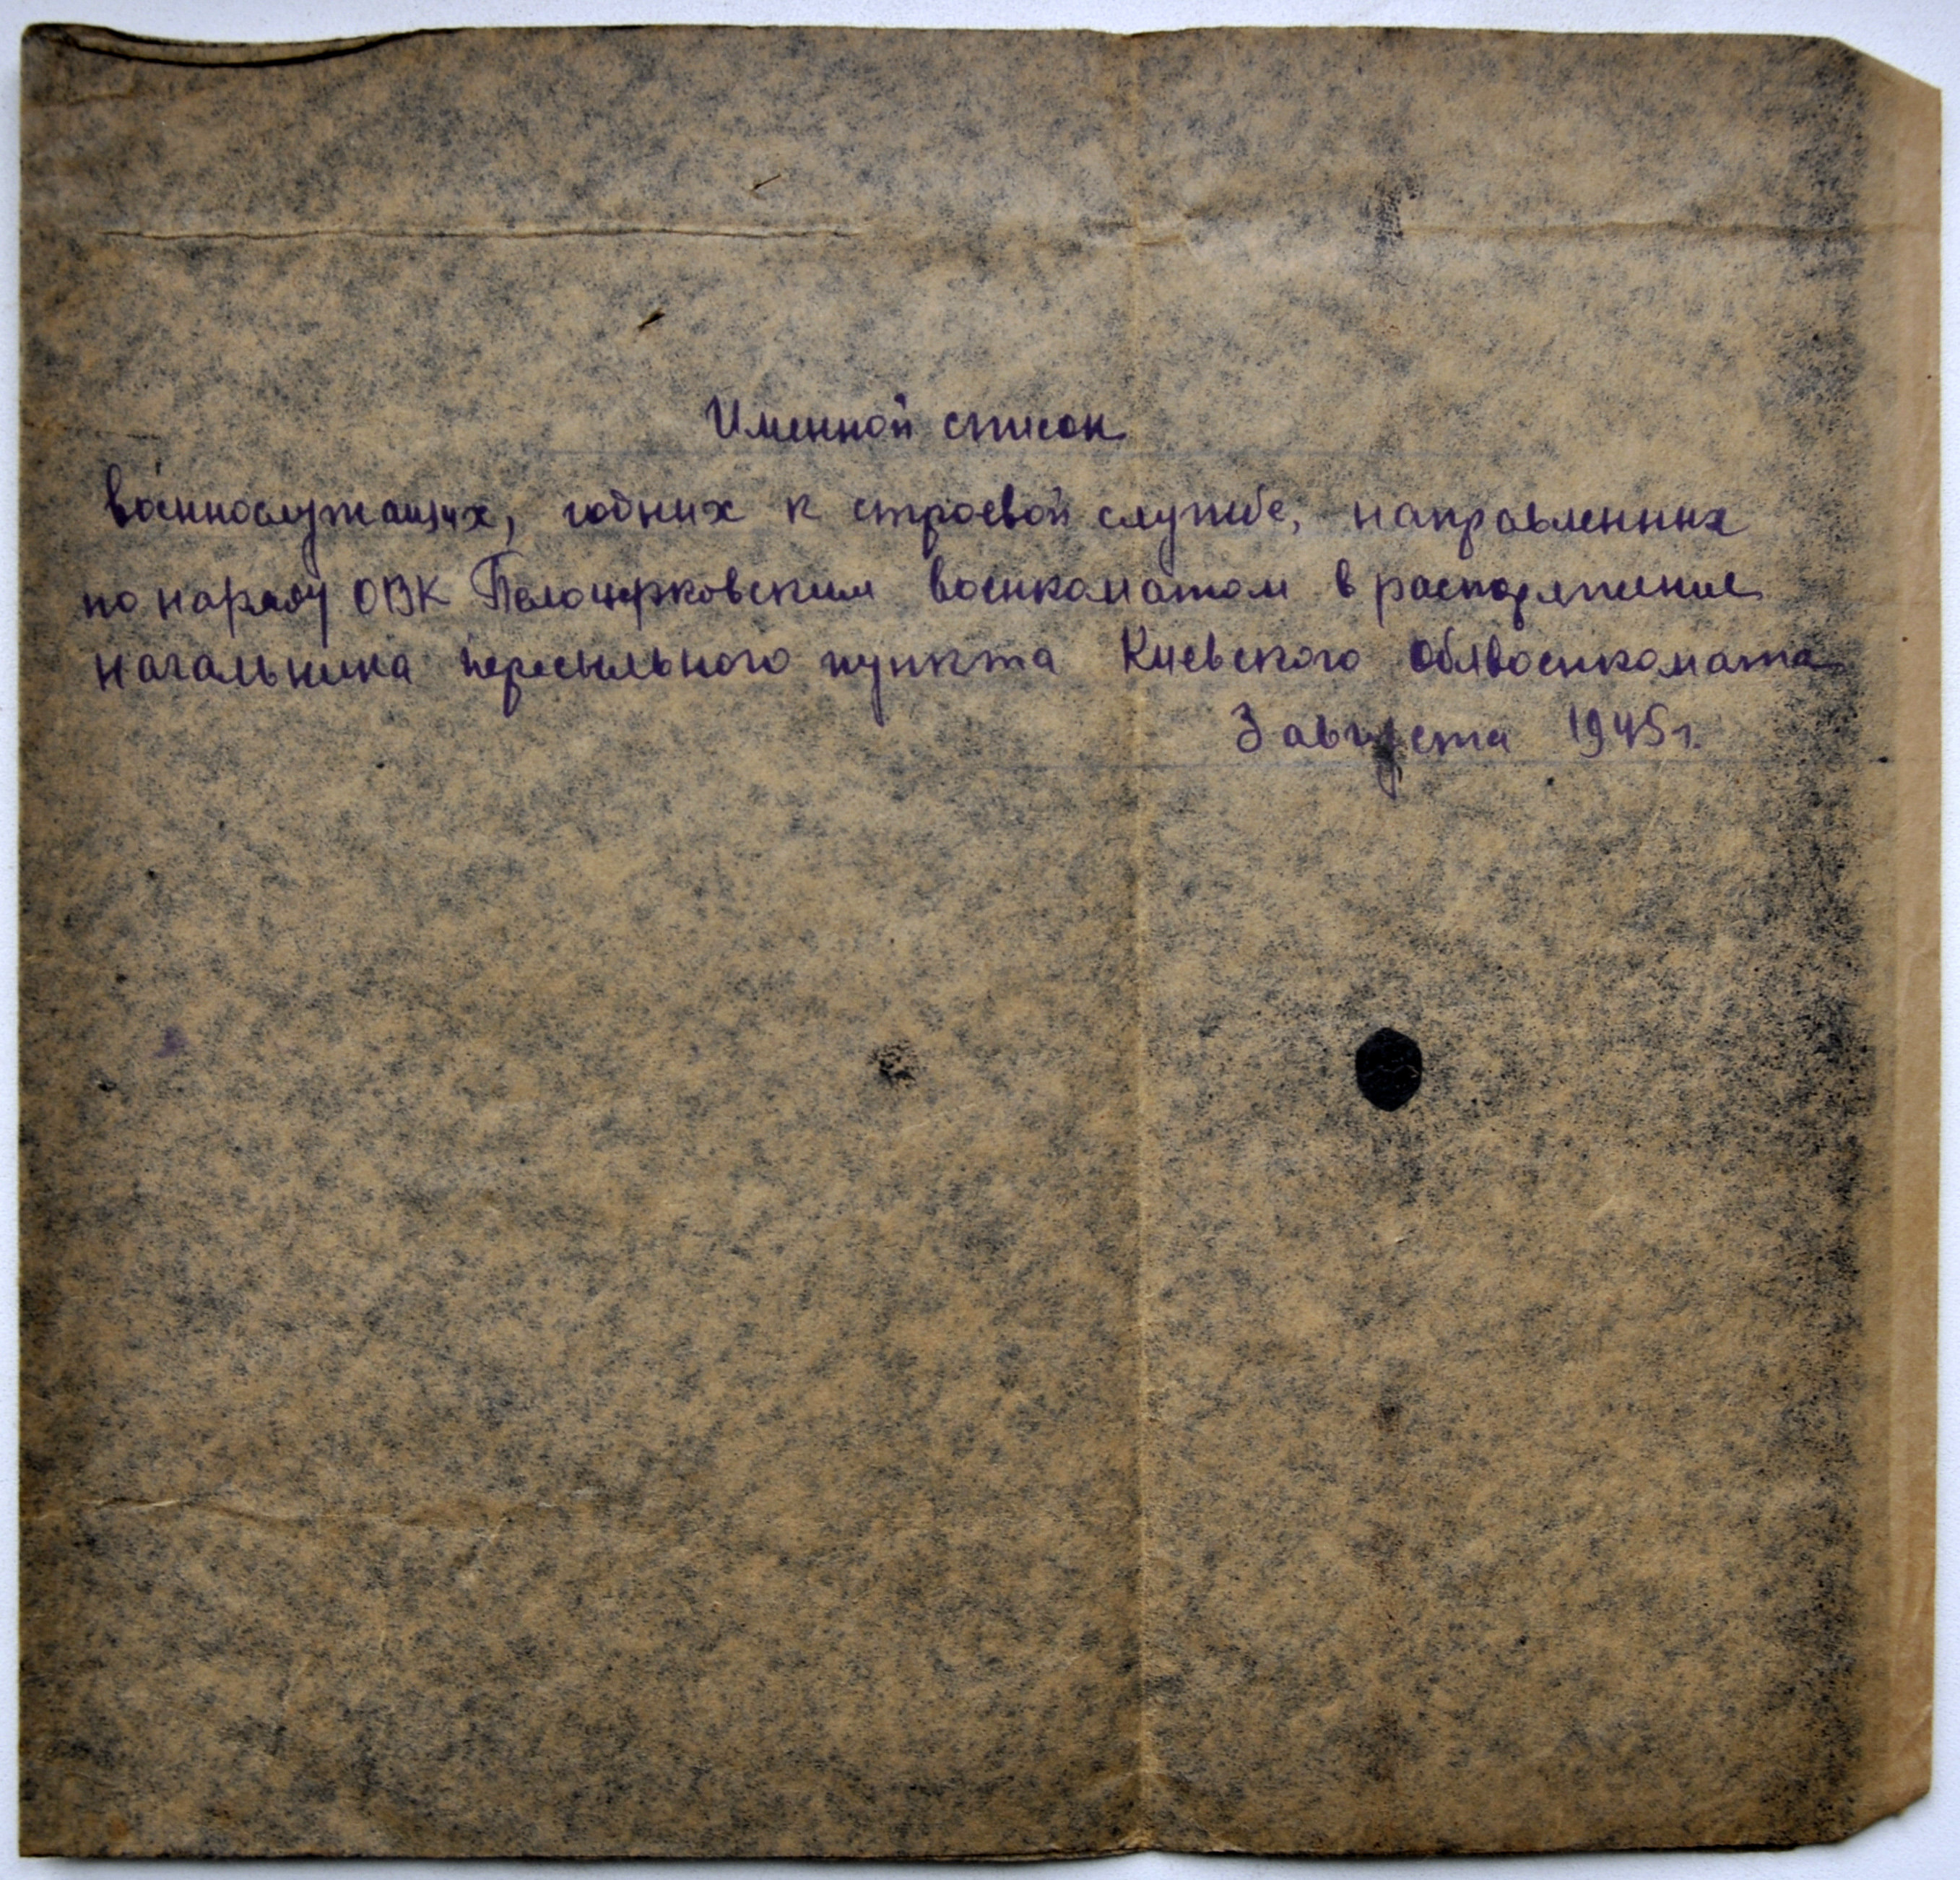 Именной список
военнослужащих, годних к строевой службе, направленных
по наряду ОВК Белоцерковским военкоматом в распоряжение
начальника пересыльного пункта Киевского Облвоенкомата
3 августа 1945 г.